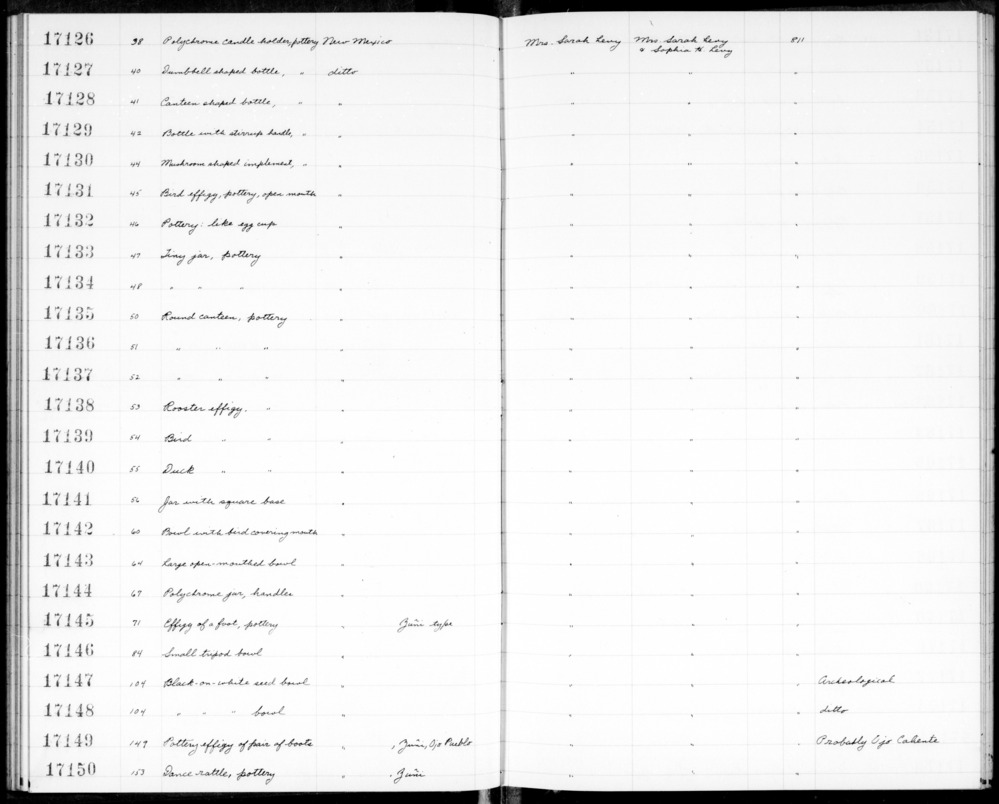 17126 38 Polychrome candle-holder, pottery New Mexico Mrs. Sarah Levy Mrs. Sarah Levy 811
& Sophia H Levy
17127 40 Dumbbell shaped bottle, " ditto " " "
17128 41 Canteen shaped bottle, " " " " "
17129 42 Bottle with stirrup handle, " " " " "
17130 44 Mushroom shaped implement, " " " " "
17131 45 Bird effigy, pottery, open mouth " " " "
17132 46 Pottery: like egg cup " " " "
17133 47 Tiny jar, pottery " " " "
17134 48 " " " " " " "
17135 50 Round canteen, pottery " " " "
17136 51 " " " " " " "
17137 52 " " " " " " "
17138 53 Rooster effigy. " " " " "
17139 54 Bird " " " " " "
17140 55 Duck " " " " " "
17141 56 Jar with square base " " " "
17142 60 Bowl with bird covering mouth " " " "
17143 64 Large open-mouthed bowl " " " "
17144 67 Polychrome jar, handles " " " "
17145 71 Effigy of a foot, pottery " Zuñi type " " "
17146 84 Small tripod bowl " " " "
17147 104 Black-on-white seed bowl " " " " Archeological
17148 104 " " " bowl " " " " ditto
17149 149 Pottery effigy of pair of boots " , Zuñi, Ojo Pueblo " " " Probably Ojo Caliente
17150 153 Dance rattles, pottery " , Zuñi " " "